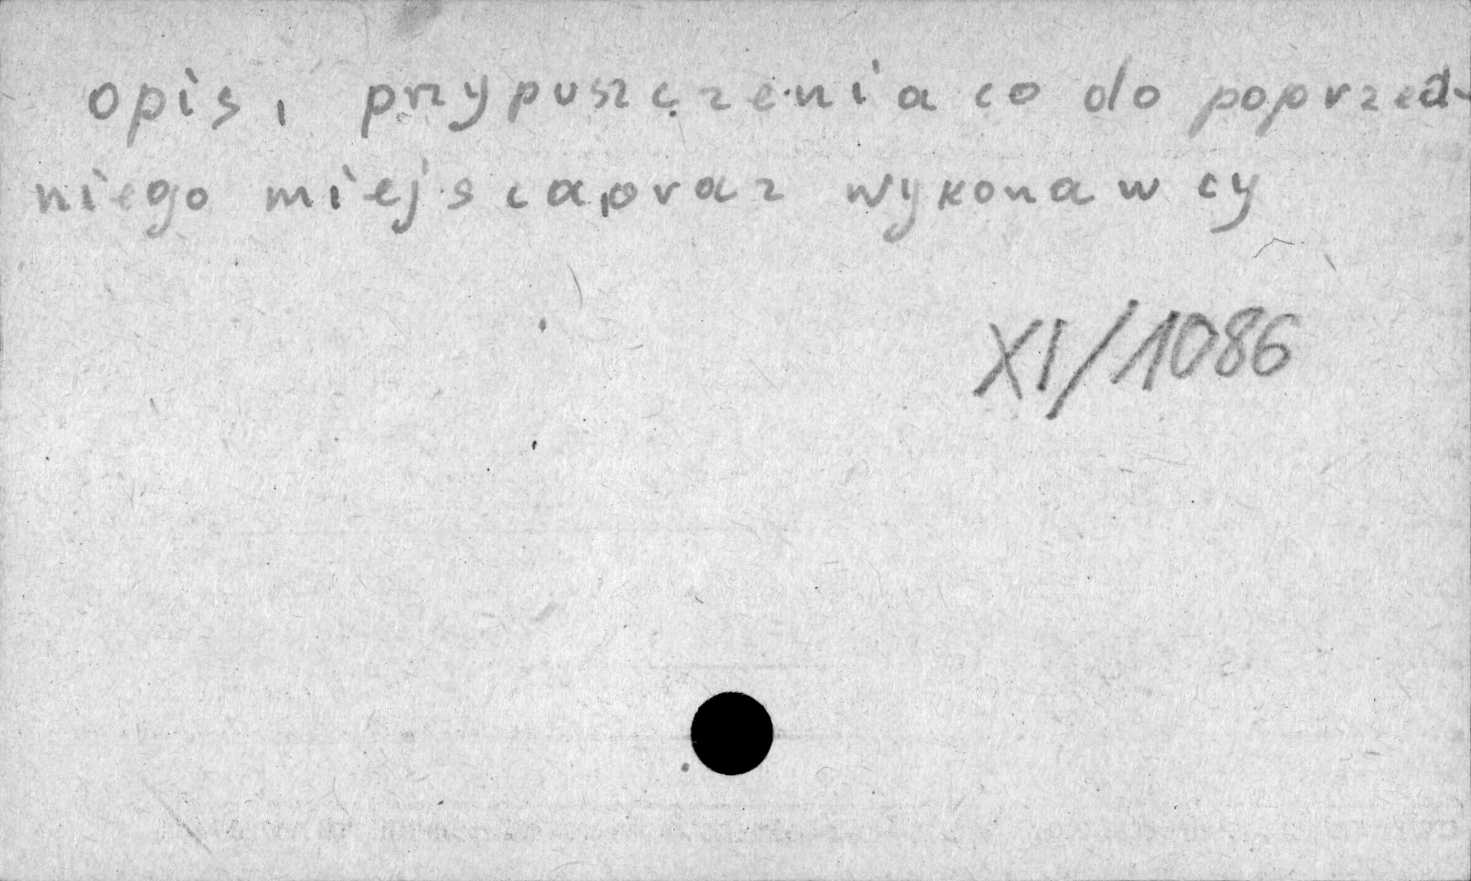 opis, przypuszczenia co do poprzed-
niego miejsca, oraz wykonawcy
XI/1086